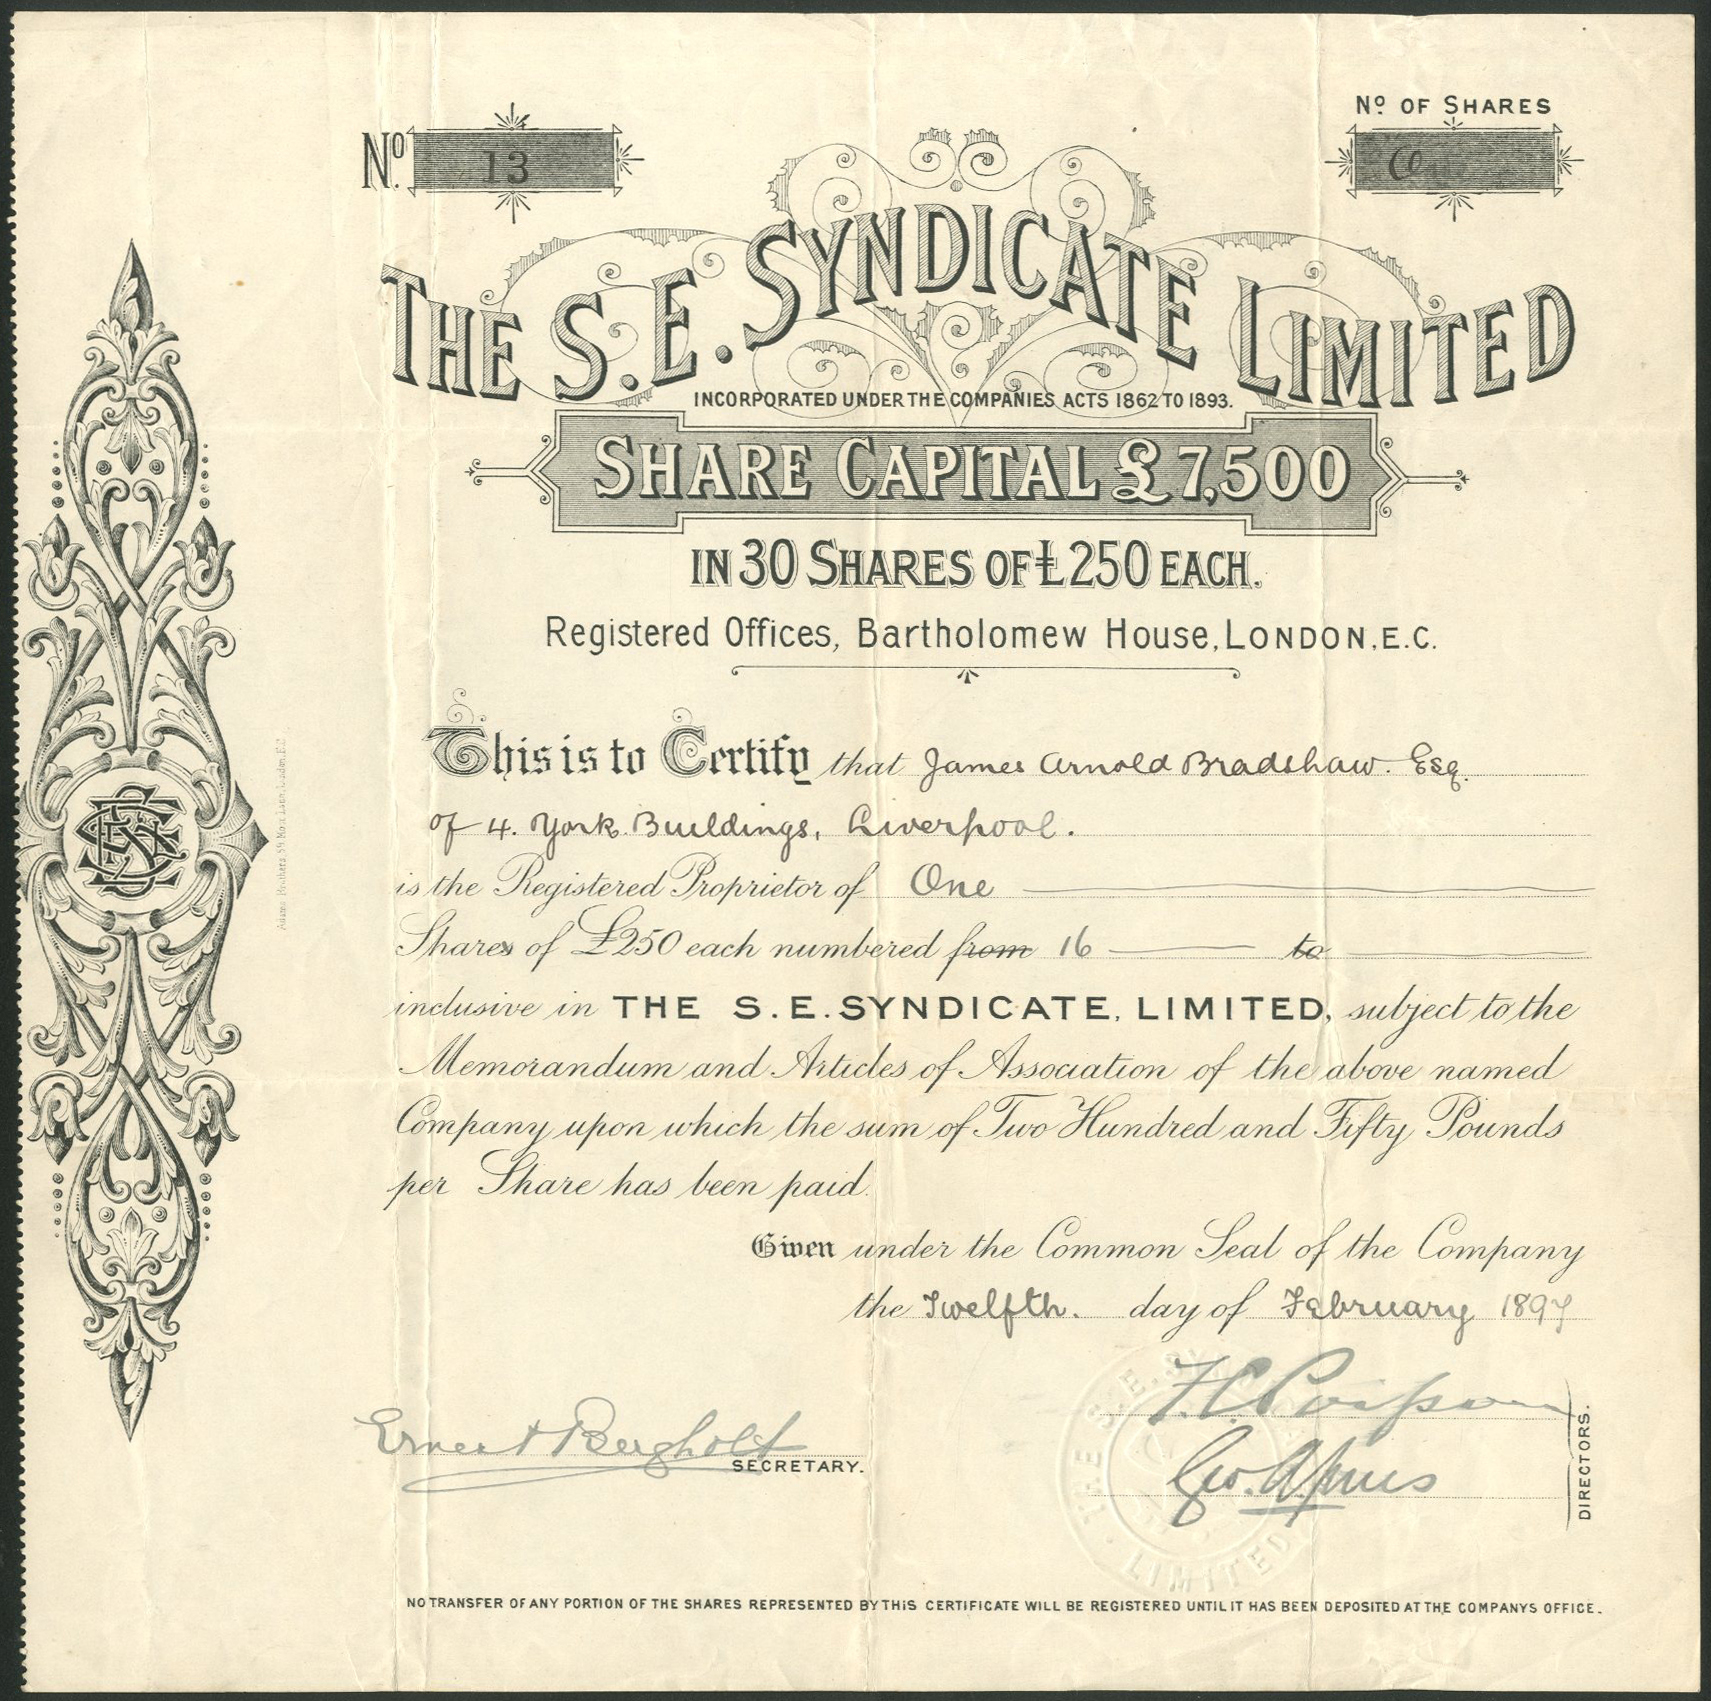 No. 13
No OF SHARES
One
THE S.E. SYNDICATE LIMITED
INCORPORATED UNDER THE COMPANIES ACTS 1862 TO 1893.
SHARE CAPITAL £7,500
IN 30 SHARES OF £250 EACH.
Registered Offices, Bartholomew House, LONDON, E.C.
This is to Certify that James Arnold Bradshaw. Esq.
of 4. York Buildings, Liverpool.
is the Registered Proprietor of One
Shares of £250 each numbered from 16 to
inclusive in THE S.E. SYNDICATE, LIMITED, subject to the
Memorandum and Articles of Association of the above named
Company upon which the sum of Two Hundred and Fifty Pounds
per Share has been paid.
Given under the Common Seal of the Company
the Twelfth. day of February 1897
Ernest Bergholt
SECRETARY.
DIRECTORS.
THE S.E. LIMITED
NO TRANSFER OF ANY PORTION OF THE SHARES REPRESENTED BY THIS CERTIFICATE WILL BE REGISTERED UNTIL IT HAS BEEN DEPOSITED AT THE COMPANYS OFFICE.